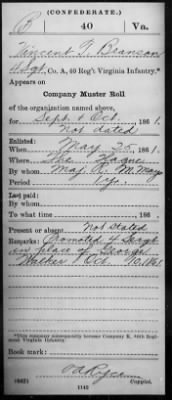 (CONFEDERATE.)
B 40 Va.
Vincent T. Branson
Sgt, Co. A, 40 Reg't Virginia Infantry.*
Appears on
Company Muster Roll
of the organization named above,
for Sept & Oct, 1861.
Not dated
Enlisted:
When May 25, 1861.
Where The Hague
By whom Maj. R. M. Mayo
Period 1 yr.
Last paid:
By whom
To what time , 186 .
Present or absent Not stated
Remarks: Promoted 4 Sergt
in place of George
Walker Oct. 10, 1861
*This company subsequently became Company K, 40th Regiment Virginia Infantry.
Book mark:
(642)
Copyist.